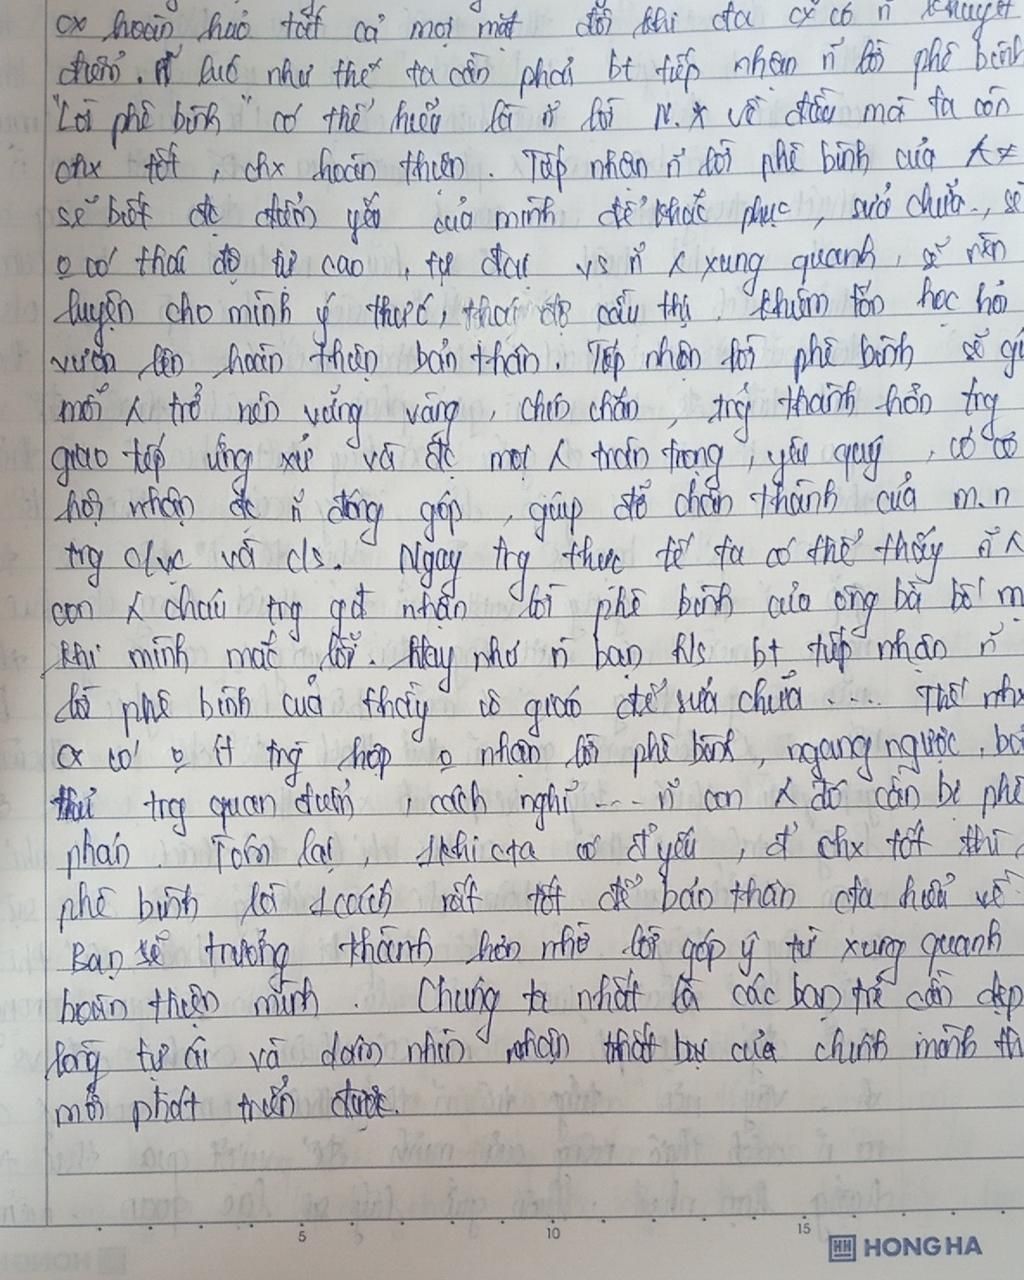 cx hoàn hảo tất cả mọi mặt đôi khi cta cx có n~ khuyết
điểm. n~ lúc như thế ta cần phải bt tiếp nhận n~ lời phê bình
"Lời phê bình" có thể hiểu là n~ lời N.x về điều mà ta còn
chx tốt, chx hoàn thiện. Tiếp nhận n~ lời phê bình của
sẽ biết đc điểm yếu của mình để khắc phục, sửa chữa., sẽ
o có thái độ tự cao, tự đại vs n~ ng xung quanh, sẽ rèn
luyện cho mình ý thức, thái độ cầu thị, khiêm tốn học hỏi
vươn lên hoàn thiện bản thân. Tiếp nhận lời phê bình sẽ gi
mỗi ng trở nên vững vàng, chín chắn, trg thành hơn trg
giao tiếp ứng xử và đc mọi ng trân trọng, yêu quý, có cơ
hội nhận đc n~ đóng góp, giúp đỡ chân thành của m.n
trg c/v và c/s. Ngay trg thực tế ta có thể thấy n~ ng
con ng cháu trg gđ nhận lời phê bình của ông bà bố m
khi mình mắc lỗi. Hay như n~ bạn h/s bt tiếp nhận n~
lời phê bình của thầy cô giáo để sửa chữa .... Thế nhx
cx có o ít trg hợp o nhận lời phê bình, ngang ngược, bảo
thủ trg quan điểm, cách nghĩ ... n~ con ng đó cần bị phê
phán. Tóm lại, khi cta có đ' yếu, đ' chx tốt thì
phê bình là 1 cách rất tốt để bản thân cta hiểu về
Bạn sẽ trưởng thành hơn nhờ lời góp ý từ xung quanh
hoàn thiện mình. Chúng ta nhất là các bạn trẻ cần dẹp
lòng tự ái và dám nhìn nhận thất bại của chính mình th
mới phát triển được.
5 10 15
HONG HA